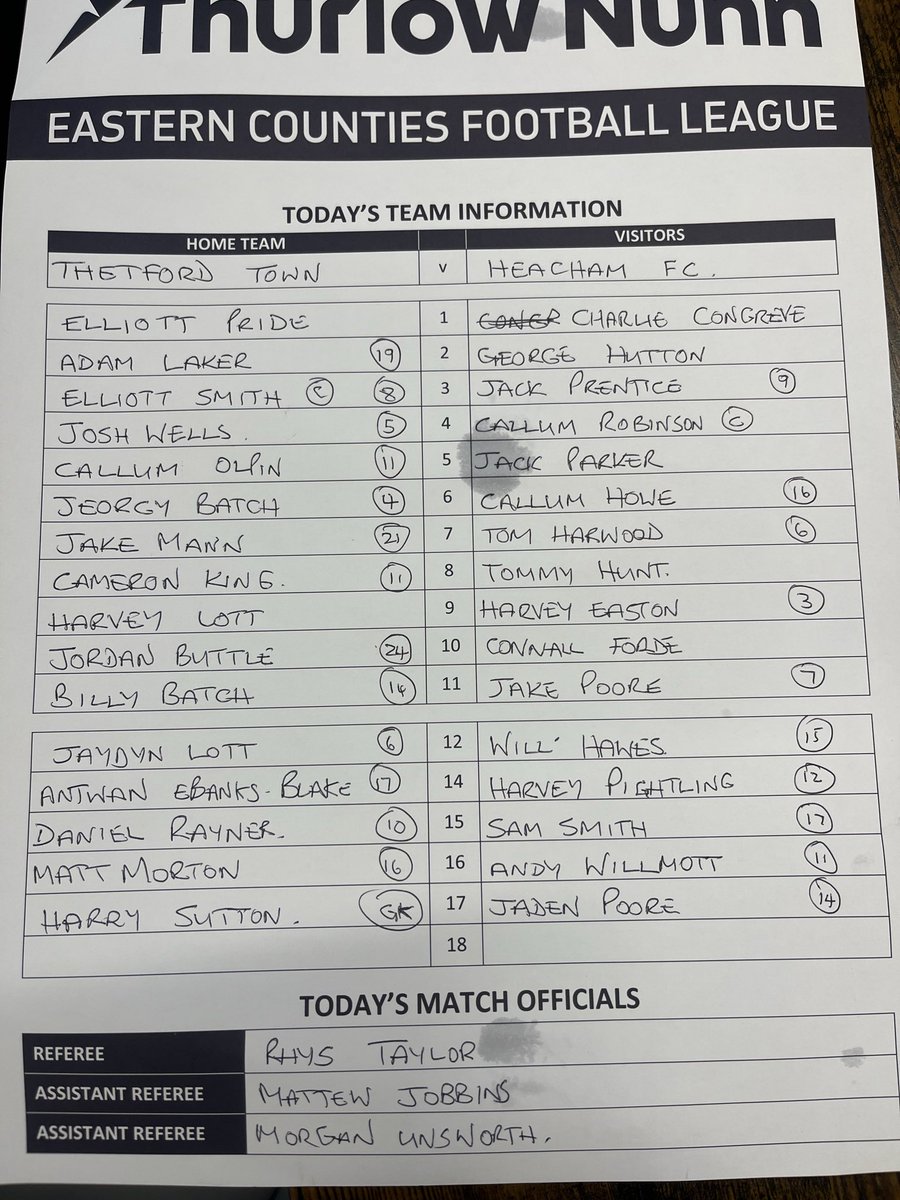 Thurlow Nunn
EASTERN COUNTIES FOOTBALL LEAGUE
TODAY'S TEAM INFORMATION
HOME TEAM VISITORS
THETFORD TOWN v HEACHAM FC.
ELLIOTT PRIDE 1 CONER CHARLIE CONGREVE
ADAM LAKER 19 2 GEORGE HUTTON
ELLIOTT SMITH C 8 3 JACK PRENTICE 9
JOSH WELLS. 5 4 CALLUM ROBINSON C
CALLUM OLPIN 11 5 JACK PARKER
JEORGY BATCH 4 6 CALLUM HOWE 16
JAKE MANN 21 7 TOM HARWOOD 6
CAMERON KING. 11 8 TOMMY HUNT.
HARVEY LOTT 9 HARVEY EASTON 3
JORDAN BUTTLE 24 10 CONNALL FORDE
BILLY BATCH 14 11 JAKE POORE 7
JAYDYN LOTT 6 12 WILL HAWES 15
ANTWAN EBANKS-BLAKE 17 14 HARVEY PIGHTLING 12
DANIEL RAYNER. 10 15 SAM SMITH 17
MATT MORTON 16 16 ANDY WILLMOTT 11
HARRY SUTTON. GK 17 JADEN POORE 14
18
TODAY'S MATCH OFFICIALS
REFEREE RHYS TAYLOR
ASSISTANT REFEREE MATTEW JOBBINS
ASSISTANT REFEREE MORGAN UNSWORTH.